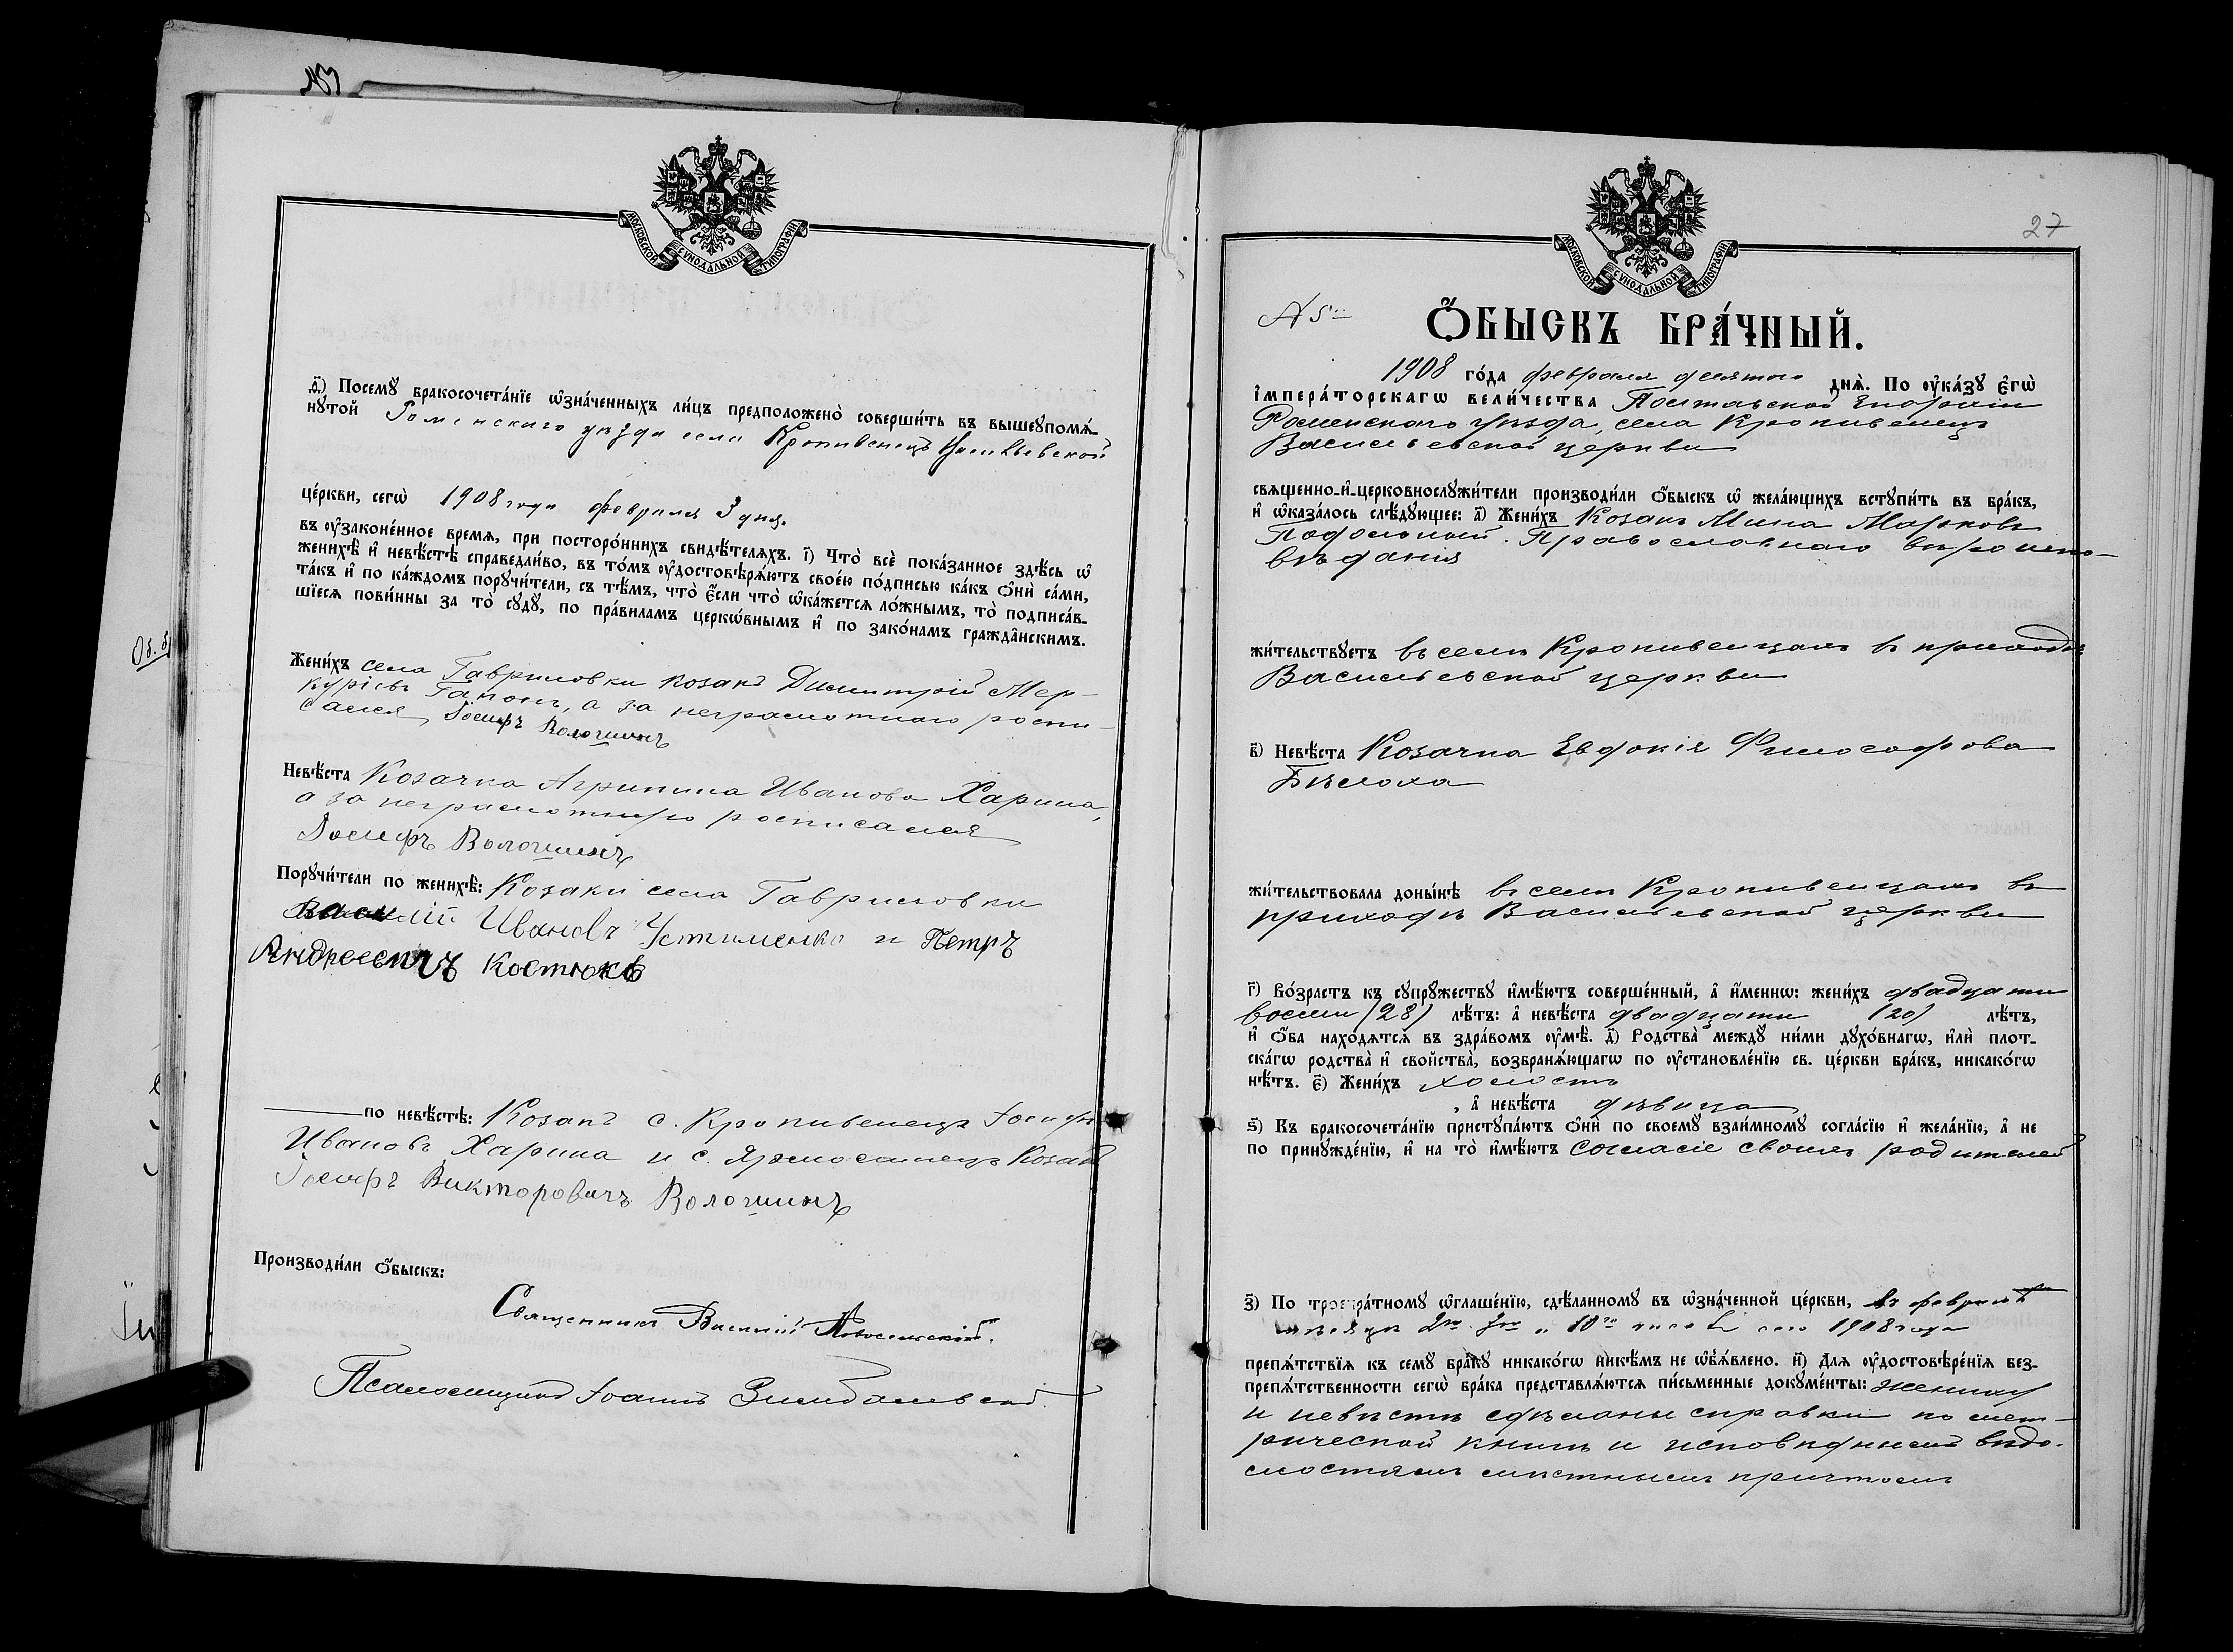 МОСКОВСКОЙ СѴНОДАЛЬНОЙ ТИПОГРАФІИ
ѳ҃) Посемꙋ бракосочета́нїе ѡ҆зна́ченныхъ ли́цъ предположено̀ соверши́ть въ вышеꙋпомѧ́-
нꙋтой Роменскаго уѣзда села Кропивенецъ Васильевской
це́ркви, сегѡ̀ 1908 года февраля 3 дня.
въ ᲂу҆законе́нное время, при посторо́ннихъ свидѣ́теляхъ. і҃) Что̀ всѐ пока́занное здѣ́сь ѡ҆
женихѣ̀ и҆ невѣ́стѣ справедли́во, въ то́мъ ᲂу҆достовѣрѧ́ютъ свое́ю по́дписью ка́къ ѻ҆нѝ са́ми,
та́къ и҆ по ка́ждомъ порꙋчи́тели, съ тѣ́мъ, что̀ є҆́сли что̀ ѡ҆ка́жется ло́жнымъ, то̀ подписа́в-
шїеся пови́нны за то̀ сꙋдꙋ̀, по пра́виламъ церко́внымъ и҆ по зако́намъ гражда́нскимъ.
Жени́хъ села Гавриловки козакъ Димитрій Мер-
куріевъ Гапонъ, а за неграмотнаго роспи-
сался Іосифъ Волошинъ
Невѣ́ста Козачка Агрипина Иванова Харина,
а за неграмотную росписался
Іосифъ Волошинъ
Порꙋчи́тели по женихѣ̀: Козаки села Гавриловки
Василій Ивановъ Устименко и Петръ
Андреевичъ Костюкъ
по невѣ́стѣ: Козакъ с. Кропивенецъ Іосифъ
Ивановъ Харина и с. Козакъ
Іосифъ Викторовичъ Волошинъ
Производи́ли ѻ҆́быскъ:
Священникъ Василій
Псаломщикъ Іоаннъ
27
МОСКОВСКОЙ СѴНОДАЛЬНОЙ ТИПОГРАФІИ
N 5
Ѻ҆́БЫСКЪ БРА́ЧНЫЙ.
1908 го́да февраля десятаго днѧ̀. По ᲂу҆ка́зꙋ є҆гѡ̀
і҆мпера́торскагѡ вели́чества Полтавской Епархіи
Роменскаго уѣзда, села Кропивенецъ
Васильевской церкви
свяще́нно-и҆-церковнослꙋжи́тели производи́ли ѻ҆́быскъ ѡ҆ жела́ющихъ встꙋпи́ть въ бра́къ,
и҆ ѡ҆каза́лось слѣ́дꙋющее: а҃) Жени́хъ Козакъ Мина Марковъ
Подольный. Православнаго вѣроиспо-
вѣданія
жи́тельствꙋетъ въ селѣ Кропивенцахъ въ приходѣ
Васильевской церкви
в҃) Невѣ́ста Козачка Евдокія Философова
Бѣлоха
жи́тельствовала доны́нѣ въ селѣ Кропивенцахъ въ
приходѣ Васильевской церкви
г҃) Во́зрастъ къ сꙋпрꙋ́жествꙋ и҆мѣ́ютъ соверше́нный, а҆ и҆́менно: жени́хъ двадцати
восьми (28) лѣ́тъ: а҆ невѣ́ста двадцати (20) лѣ́тъ,
и҆ ѻ҆́ба нахо́дятся въ здра́вомъ ᲂу҆мѣ̀. д҃) Родства̀ междꙋ̀ ни́ми дꙋхо́внагѡ, и҆лѝ плот-
ска́гѡ родства̀ и҆ свойства̀, возбранѧ́ющагѡ по ᲂу҆становле́нїю св. це́ркви бра́къ, никако́гѡ
нѣ́тъ. є҃) Жени́хъ холостъ
, а҆ невѣ́ста дѣвица
ѕ҃) Къ бракосочета́нїю пристꙋпа́ютъ ѻ҆нѝ по своемꙋ̀ взаи́мномꙋ согла́сїю и҆ жела́нїю, а҆ не
по принꙋжде́нїю, и҆ на то̀ и҆мѣ́ютъ согласіе своихъ родителей
з҃) По троекра́тномꙋ ѡ҆глаше́нїю, сдѣ́ланномꙋ въ ѡ҆зна́ченной це́ркви, въ февралѣ
мѣсяцѣ 2го 3го и 10го числѣ сего 1908 года
препѧ́тствїя къ семꙋ̀ бра́кꙋ никако́гѡ никѣ́мъ не ѡ҆б̾ѧ́влено. и҃) Для ᲂу҆достовѣре́нїя без-
препѧ́тственности сегѡ̀ бра́ка представлѧ́ются пи́сьменные докꙋме́нты: жениху
и невѣстѣ сдѣланы справки по мет-
рической книгѣ и исповѣднымъ вѣдо-
мостямъ мѣстнымъ причтомъ